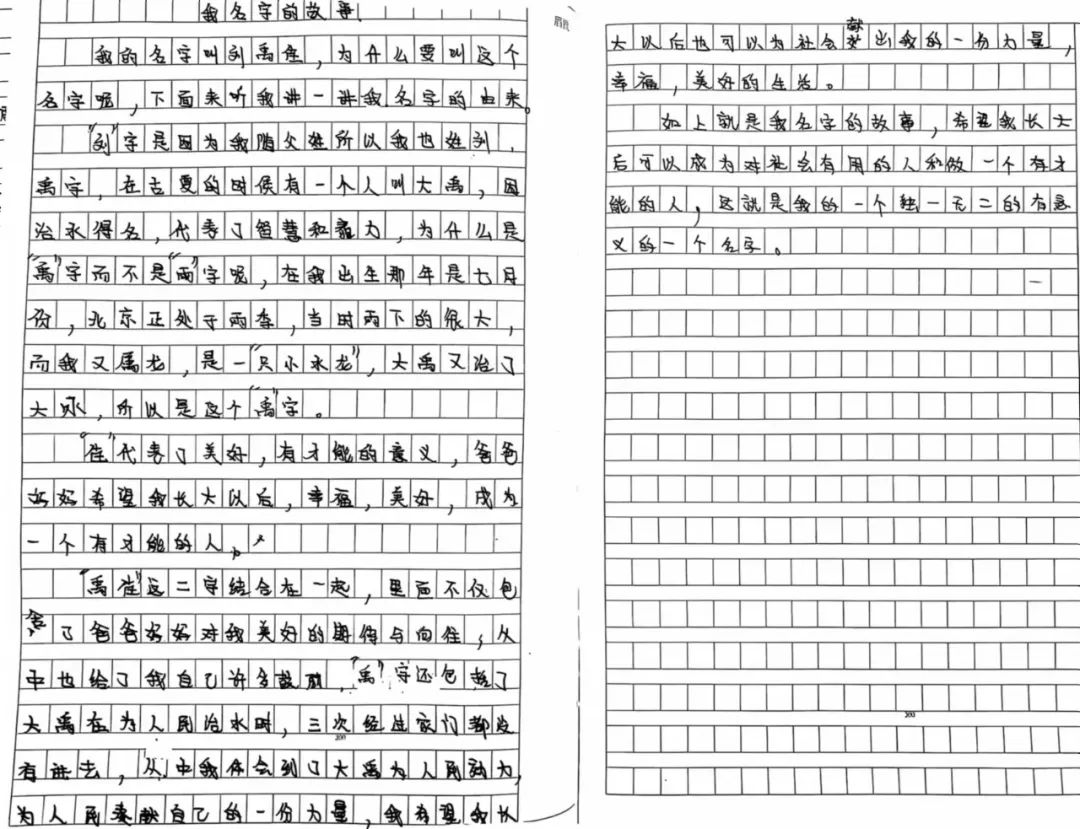 我名字的故事
我的名字叫刘禹佳，为什么要叫这个
名字呢，下面来听我讲一讲我名字的由来。
“刘”字是因为我随父姓所以我也姓刘，
禹字，在古夏的时候有一个人叫大禹，因
治水得名，代表了智慧和毅力，为什么是
“禹”字而不是“雨”字呢，在我出生那年是七月
份，北京正处于雨季，当时雨下的很大，
而我又属龙，是一“只小水龙”，大禹又治了
大水，所以是这个“禹”字。
“佳”代表了美好，有才能的意义，爸爸
妈妈希望我长大以后，幸福，美好，成为
一个有才能的人。
“禹佳”这二字结合在一起，里面不仅包
含了爸爸妈妈对我美好的期待与向往，从
中也给了我自己许多鼓励，“禹”字还包括了
大禹在为人民治水时，三次经过家门都没
有进去，从中我体会到了大禹为人民
为人民奉献自己的一份力量，我希望我长
大以后也可以为社会献出我的一份力量，
幸福，美好的生活。
如上就是我名字的故事，希望我长大
后可以成为对社会有用的人和做一个有才
能的人，这就是我的一个独一无二的有意
义的一个名字。